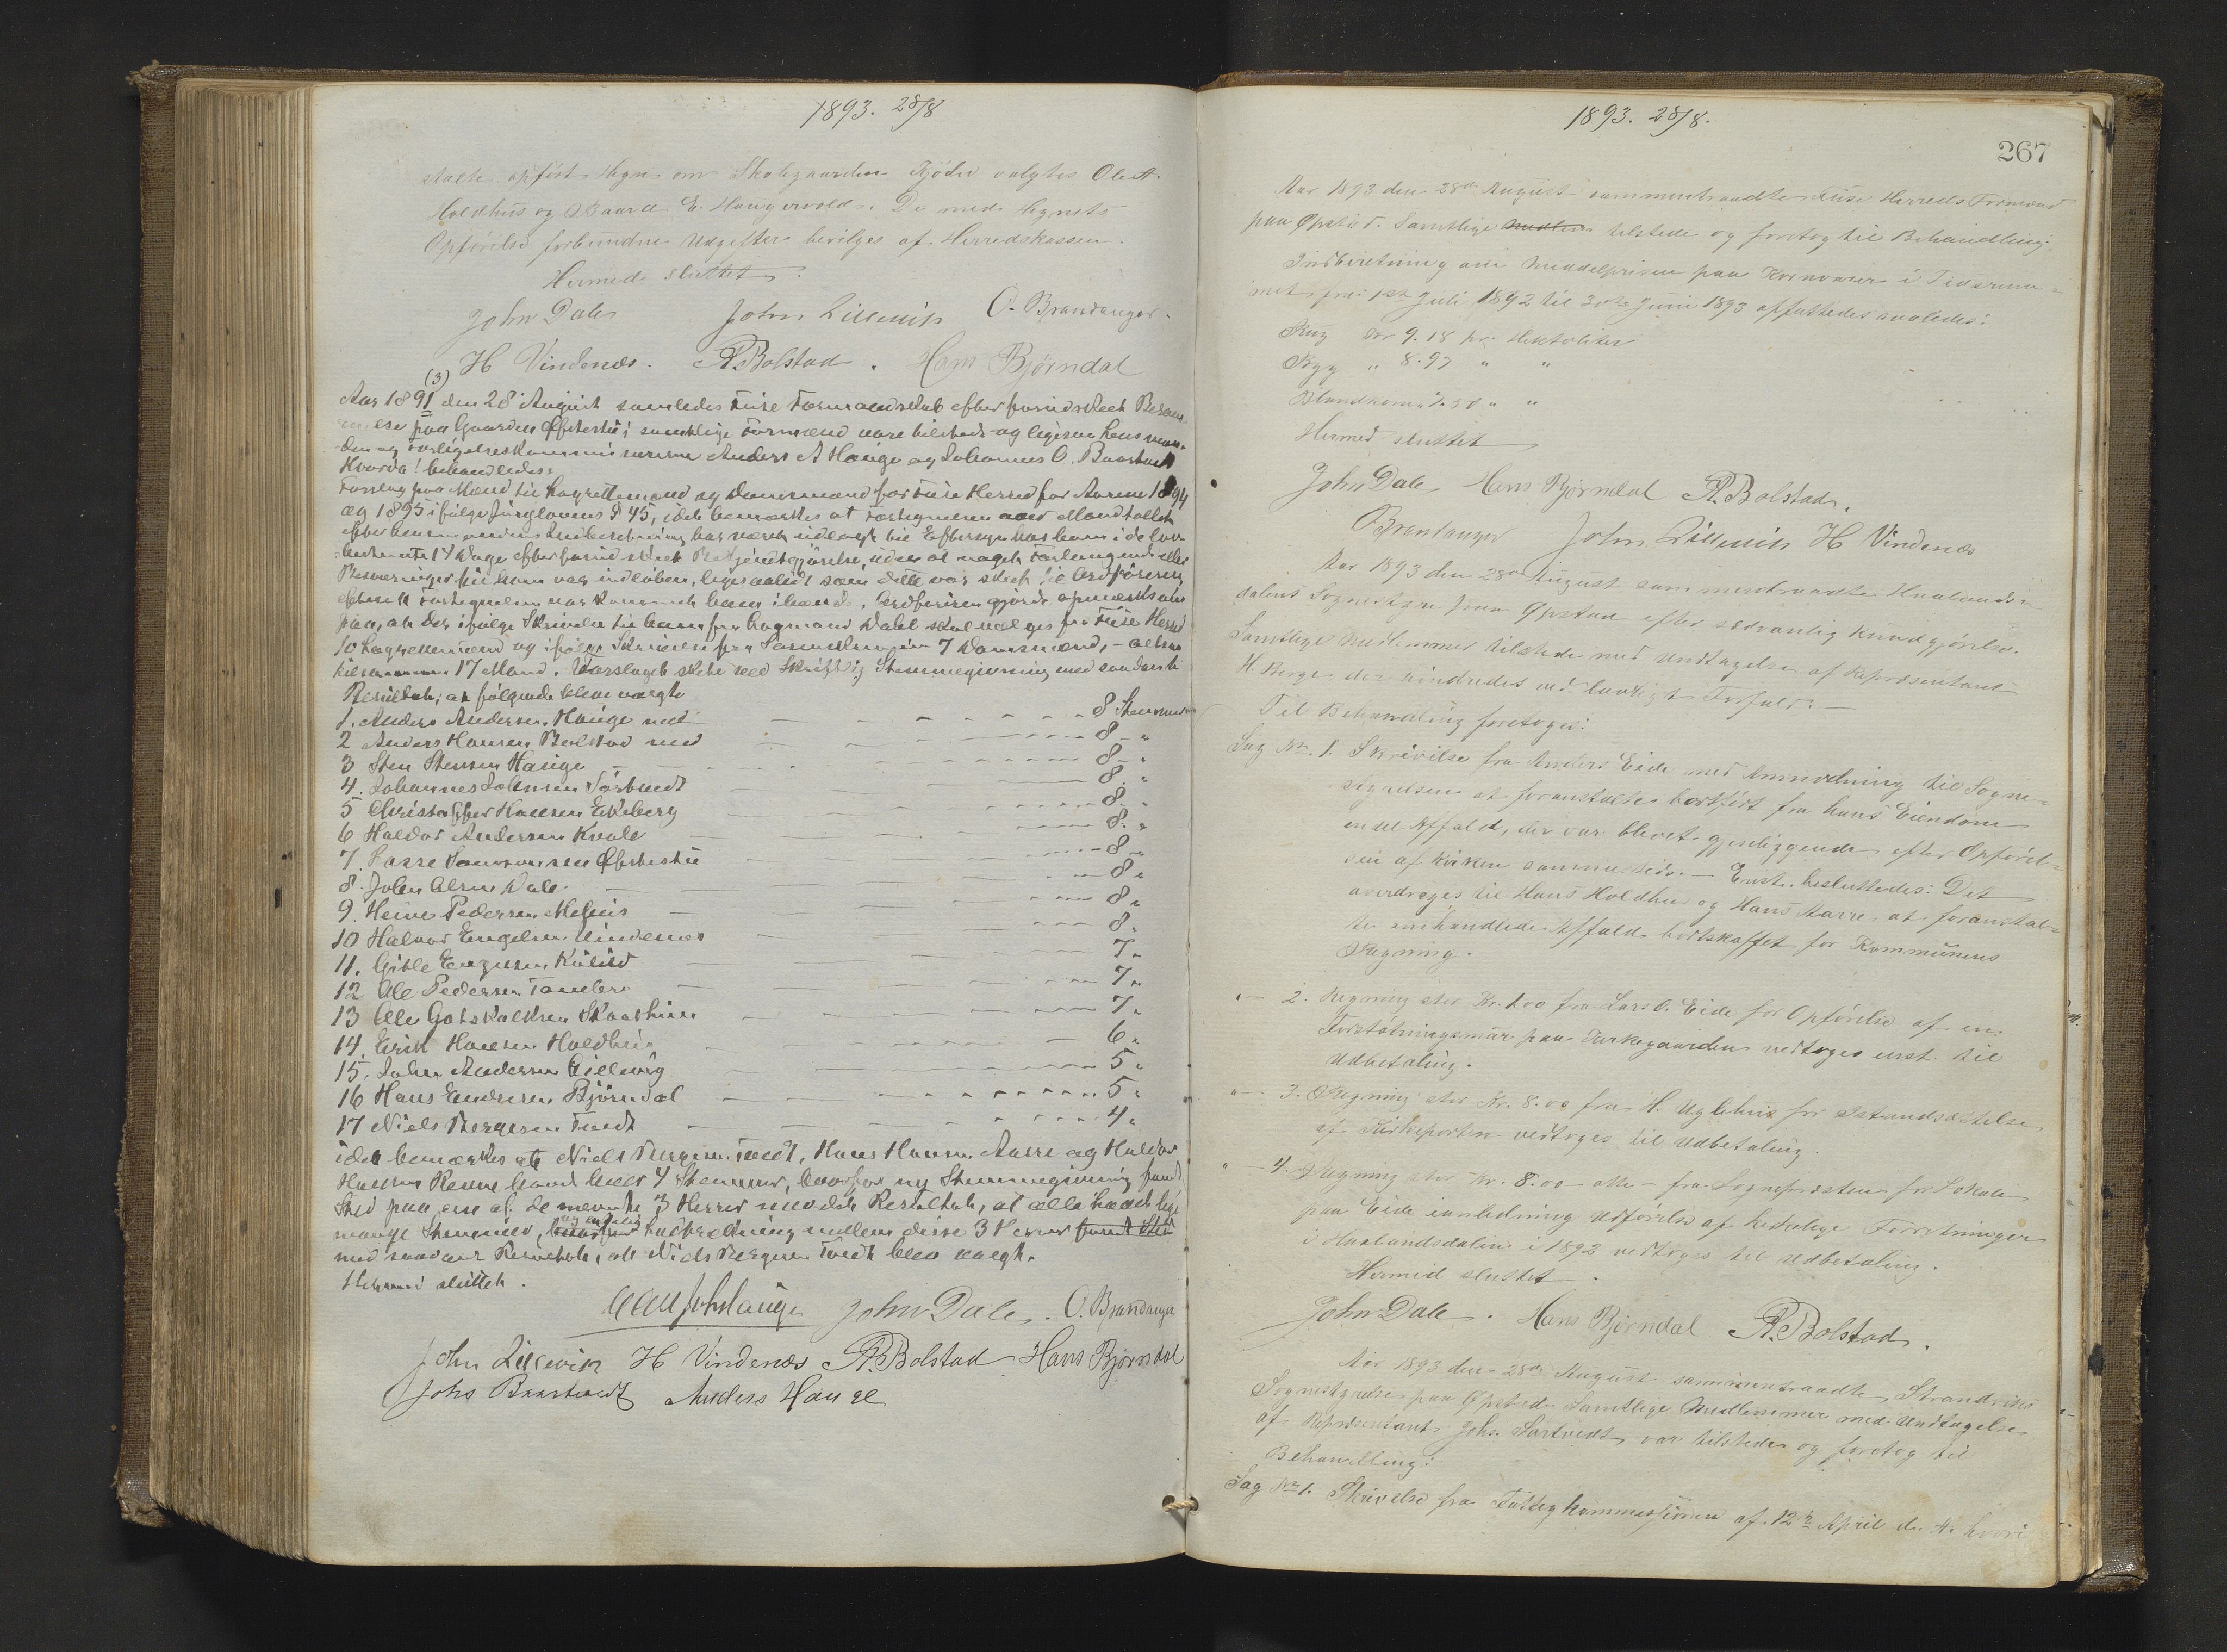 1893. 28/8
stalte opført Hegn om Skolegaarden Gjøder valgtes Ole A.
Holdhus og Baard E. Haugervold. De med Hegnets
Opførelse forbundne Udgifter bevilges af Herredskassen.
Hermed sluttet.
John Dale John Lillevik O. Brandanger.
H Vindenæs. A. Bolstad. Hans Bjørndal
(3)
Aar 1891 den 28 August samledes Fuse Formandskab efter forudskeet Beram-
melse paa Gaarden Øfstestu; samtlige Formænd vare tilstede og ligesaa Lensman-
den og Forligelseskommissærerne Anders A Hauge og Johannes O. Baastvedt
Hvorda! behandledes:
Forslag paa Mænd til Lagrettemænd og Domsmænd for Fuse Herred for Aarene 1894
og 1895 ifølge Jurylovens § 45, idet bemærkes at Fortegnelsen over Mandtallet
efter Lensmandens Indberetning har været udlagt til Eftersyn hos ham i de lov-
bestemte 14 Dage efter forud skeet Bekjendtgjørelse, uden at nogen Forlangende eller
Besværinger til ham var indløben, ligesaalidt som dette var skeet til Ordføreren
efterat Fortegnelsen var kommet ham ihænde. Ordføreren gjorde opmærksom
paa, at der ifølge Skrivelse til ham fra Lagmand Dahl skal vælges fra Fuse Herred
10 Lagrettemænd og ifølge Skrivelse fra Sorenskriveren 7 Domsmænd, – altsaa
tilsammen 17 Mand. Forslaget skete ved Skriftlig Stemmegivning med saadant
Resultat; at følgende bleve valgte
1. Anders Andersen Hauge med 8 Stemmer
2 Anders Hansen Bolstad med 8 "
3 Sten Stensen Hauge 8 "
4. Johannes Johnsen Sørtvedt 8 "
5 Christopher Hansen Ekeberg 8 "
6 Haldor Andersen Kvale 8. "
7. Lasse Øfstestu 8 "
8. John Olsen Dale 8 "
9. Heine Pedersen Melhus 8 "
10 Halvor Engelsen Vindenes 8 "
11. Gitle Kulild 7 "
12 Ole Pedersen 7 "
13 Ole Gotskalksen Skaathun 7 "
14. Erik Hansen Holdhus 6 "
15. John Andersen Lillevig 5 "
16 Hans Endresen Bjørndal 5 "
17 Niels Bergesen Tvedt 4 "
idet bemærkes at Niels Bergesen Tvedt, Hans Hansen Aarre og Haldor
Hansen havde hver 4 Stemmer, hvorfor ny Stemmegivning fandt
Sted paa een af de nævnte 3 Herrer med det Resultat, at alle havde lige
mange Stemmer, og endelig Lodtrækning mellem disse 3 Herrer fandt Sted
med saadant Resultat, at Niels Bergesen Tvedt blev valgt.
Hermed sluttet.
John Dale. O. Brandanger
John Lillevik H Vindenæs A. Bolstad Hans Bjørndal
Johs Baastvedt Anders Hauge
1893. 28/8.
267
Aar 1893 den 28de August sammentraadte Fuse Herreds Formænd
paa Øpstad. Samtlige tilstede og foretog til Behandling:
Indberetning om Middelprisen paa Kornvarer i Tidsrum-
met fra 1ste Juli 1892 til 30te Juni 1893 opfattedes saaledes:
Rug Kr 9.18 pr. Hektoliter
Byg " 8.97 " "
Blandkorn " 7.50 " "
Hermed sluttet
John Dale Hans Bjørndal A. Bolstad.
Brandanger John Lillevik H Vindenæs
Aar 1893 den 28de August sammentraadte Haalands-
dalens Sognestyre paa Øpstad efter sædvanlig Kundgjørelse.
Samtlige Medlemmer tilstede med Undtagelse af Repræsentant
H. Berge der hindredes ved lovligt Forfald. –
Til Behandling foretoges:
Sag No. 1. Skrivelse fra Anders Eide med Anmodning til Sogne-
styrelsen at foranstalte bortført fra hans Eiendom
endel Affald, der var blevet gjenliggende efter Opførel-
sen af Kirken sammesteds. – Enst. besluttedes: Det
overdrages til Hans Holdhus og Hans Aarre at foranstal-
te omhandlede Affald bortskaffet for Kommunens
Regning.
" – 2. Regning stor Kr. 100 fra Lars O. Eide for Opførelse af en
Forstøtningsmur paa Kirkegaarden vedtoges enst. til
Udbetaling.
" – 3. Regning stor Kr. 8.00 fra H. Uglehus for Istandsættelse
af Kirkeporten vedtoges til Udbetaling.
" – 4. Regning stor Kr. 8.00 – otte – fra Sognepræsten for Lokale
paa Eide i anledning Udførelse af kirkelige Forretninger
i Haalandsdalen i 1892 vedtoges til Udbetaling.
Hermed sluttet.
John Dale. Hans Bjørndal A. Bolstad.
Aar 1893 den 28de August sammentraadte Strandviks
Sognestyrelse paa Øpstad. Samtlige Medlemmer med Undtagelse
af Repræsentant Johs. Sørtvedt var tilstede og foretog til
Behandling:
Sag No 1. Skrivelse fra Fattigkommissionen af 12te April d. A. hvori